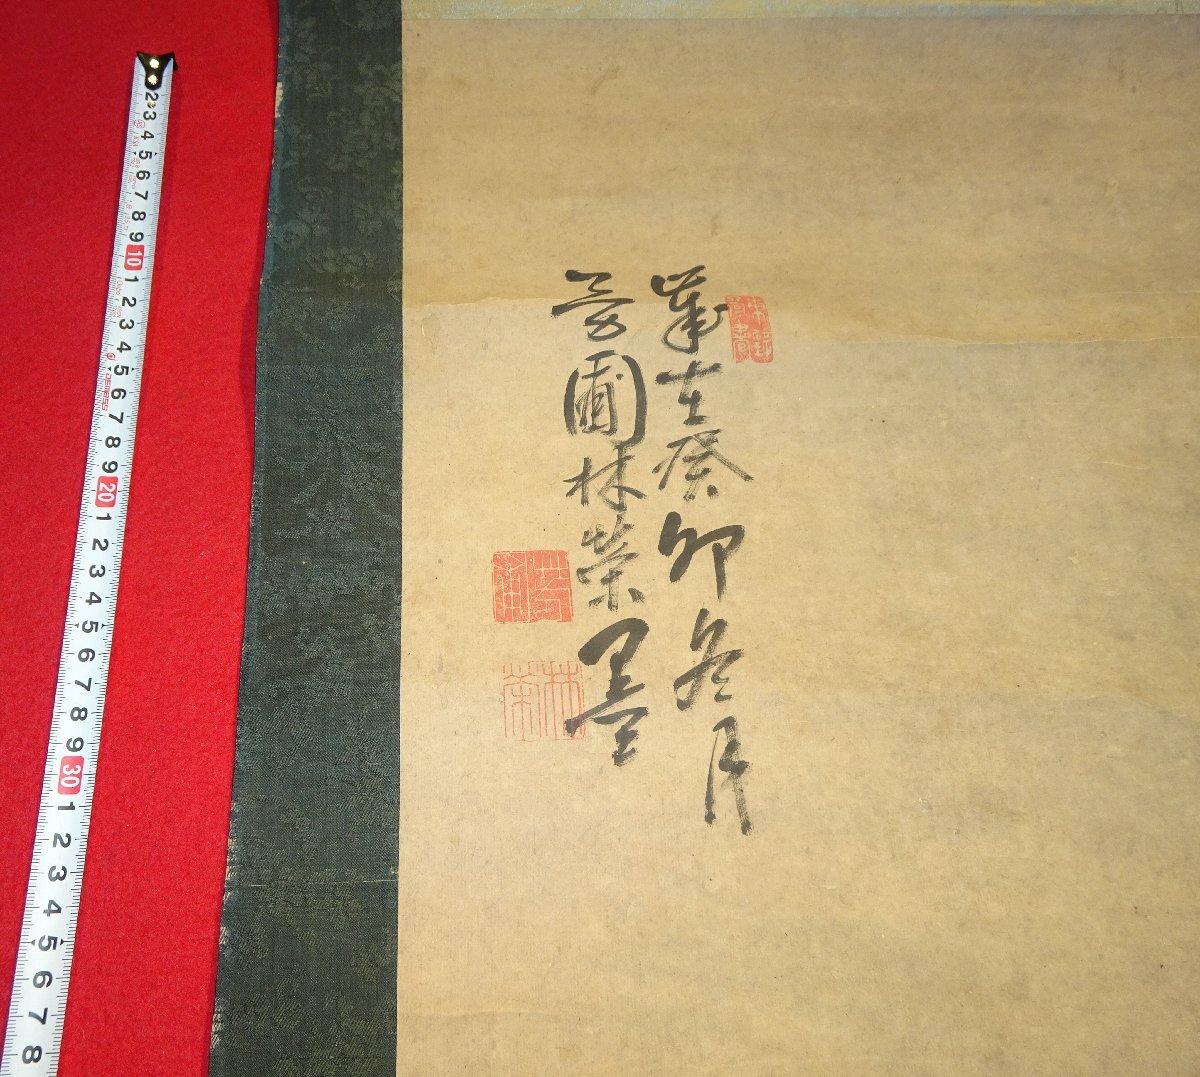 歲在癸卯冬月
芸圃林榮墨
林榮
2 3 4 5 6 7 8 9 10 1 2 3 4 5 6 7 8 9 20 1 2 3 4 5 6 7 8 9 30 1 2 3 4 5 6 7 8